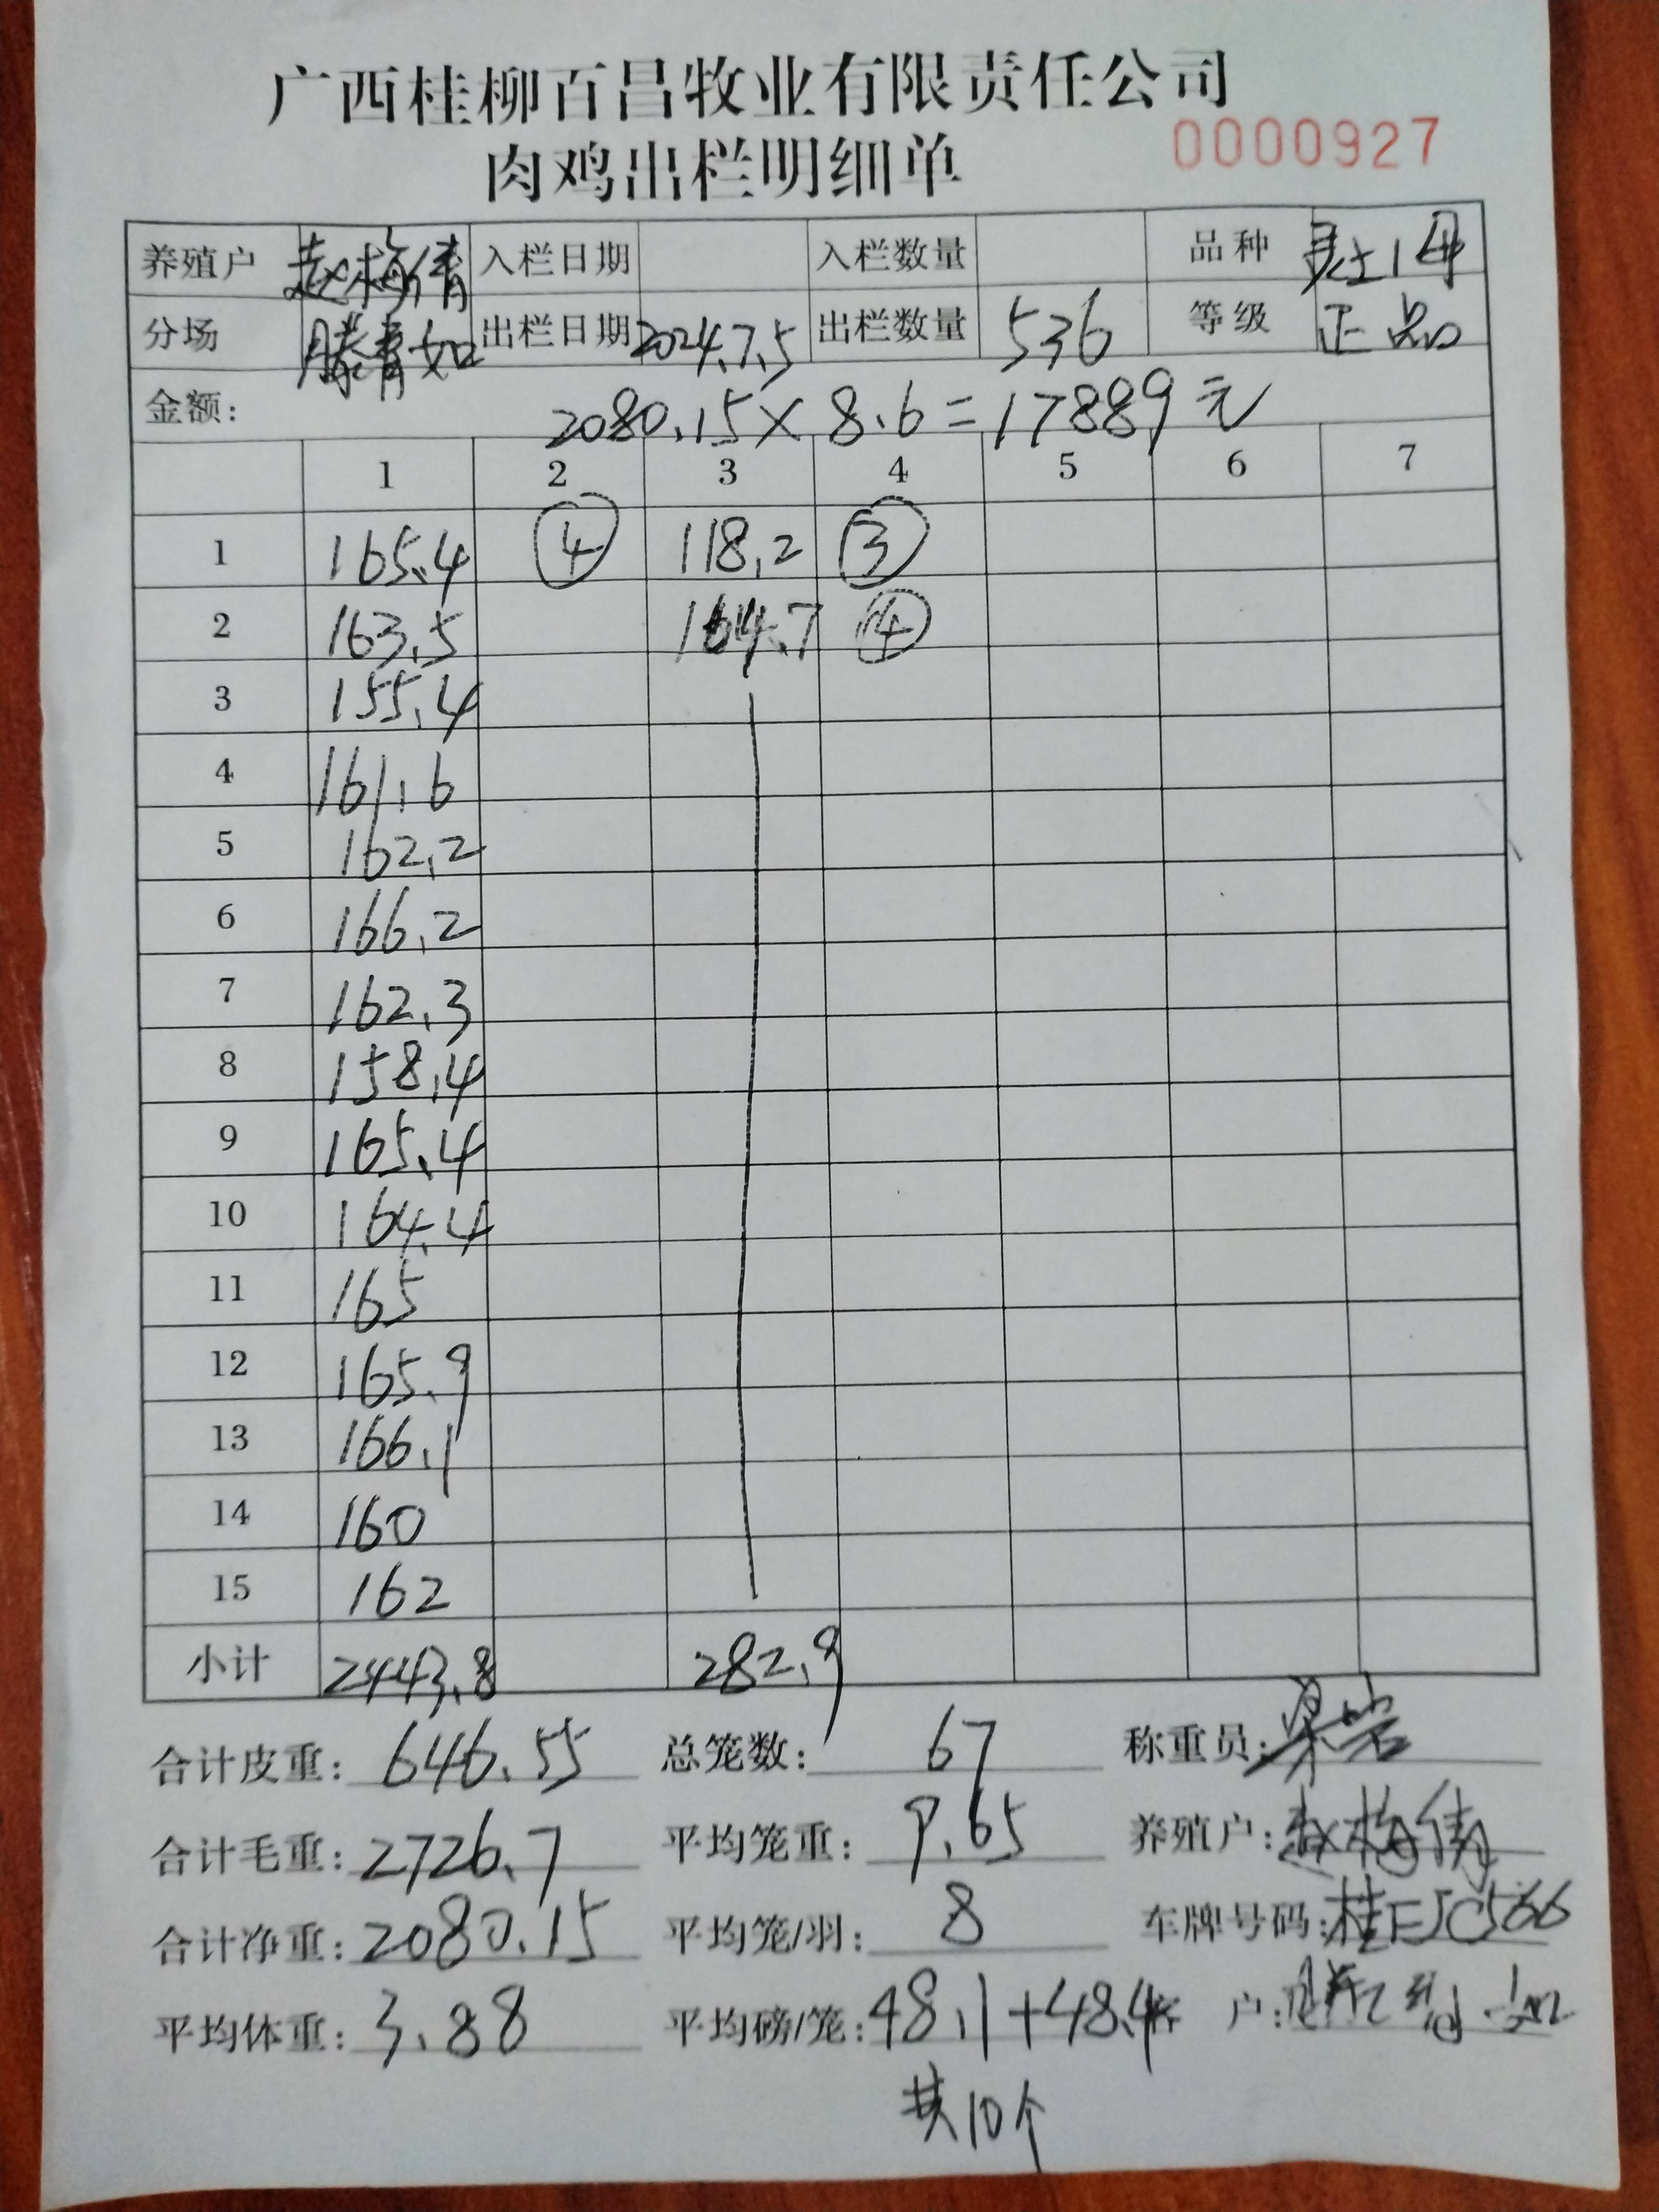 广西桂柳百昌牧业有限责任公司
肉鸡出栏明细单 0000927
养殖户 赵梅倩 入栏日期 入栏数量 品种 灵土1母
分场 滕青如 出栏日期 2024.7.5 出栏数量 536 等级 正品
金额: 2080.15×8.6=17889元
1 2 3 4 5 6 7
1 165.4 ④ 118.2 ③
2 163.5 164.7 ④
3 155.4
4 161.6
5 162.2
6 166.2
7 162.3
8 158.4
9 165.4
10 164.4
11 165
12 165.9
13 166.1
14 160
15 162
小计 2443.8 282.9
合计皮重: 646.55 总笼数: 67 称重员:
合计毛重: 2726.7 平均笼重: 9.65 养殖户: 赵梅倩
合计净重: 2080.15 平均笼/羽: 8 车牌号码: 桂EJC566
平均体重: 3.88 平均磅/笼: 48.1+48.4 客户:
共10个